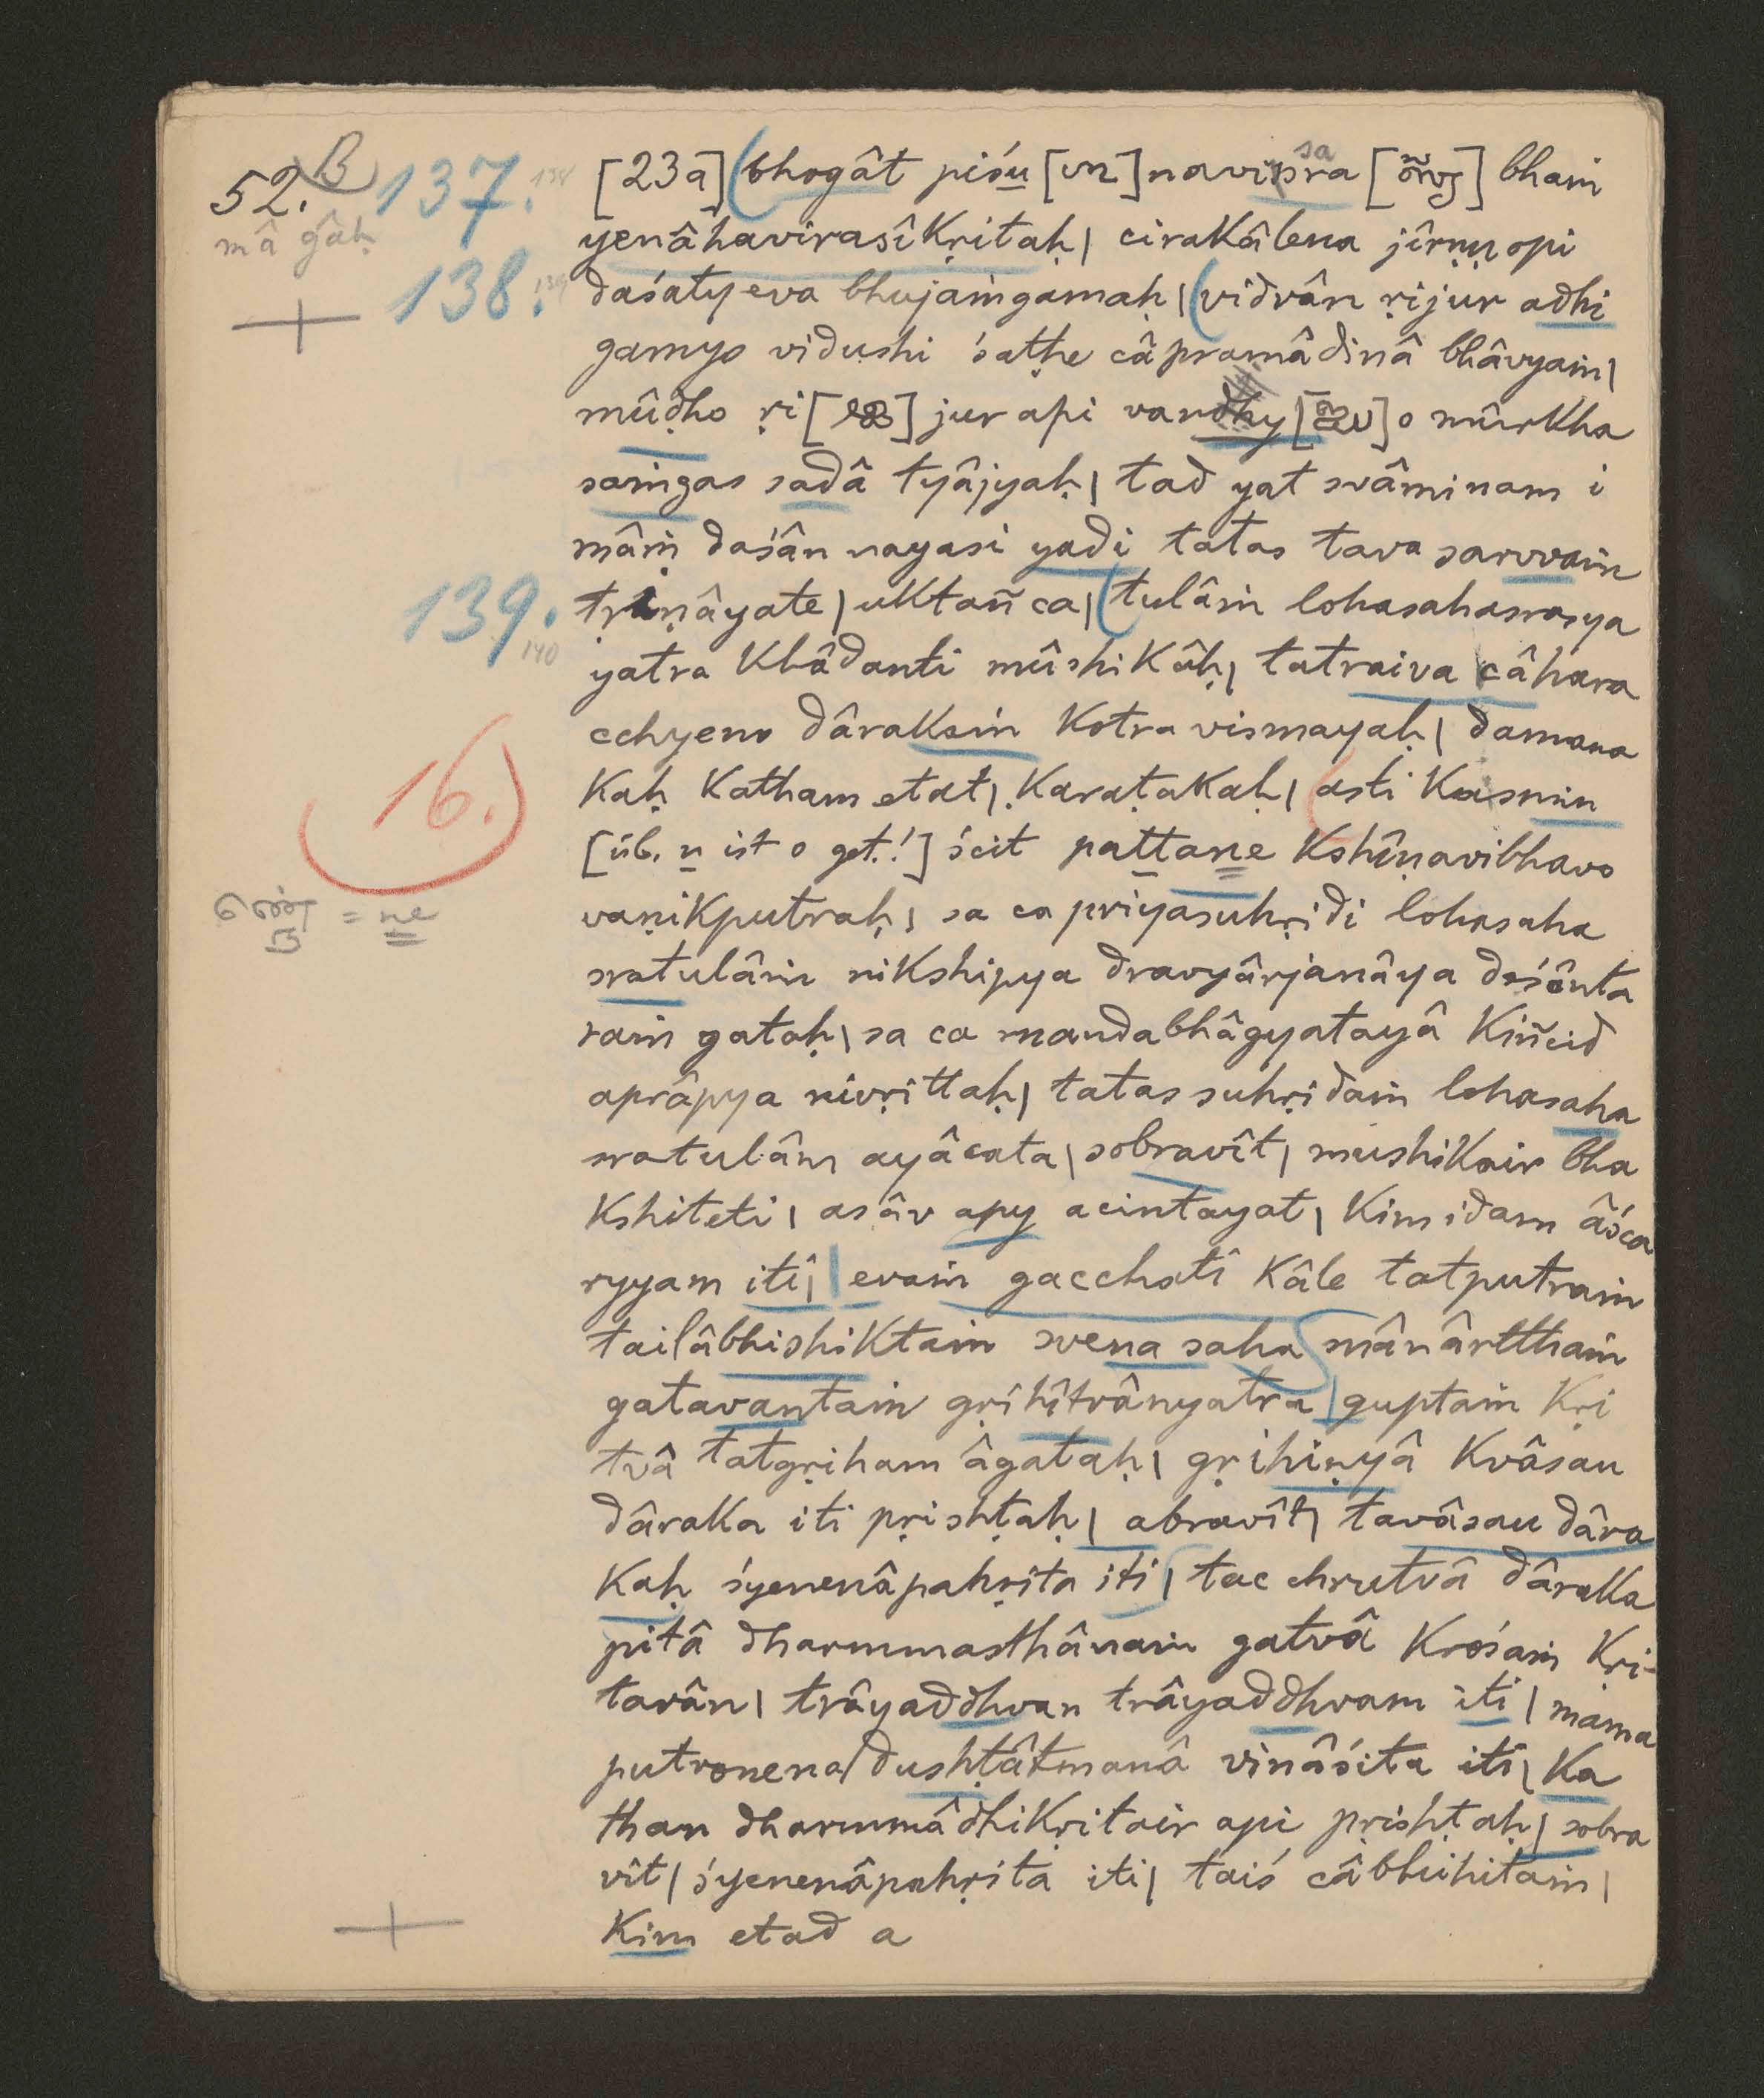 52. B
mâ gâḥ
137. 138
[23a] bhogât piśu [ ] navipra sa [ ] bhaṁ
yenâhavirasîkṛitaḥ| cirakâlena jîrṇṇopi
138. 139
daśaty eva bhujaṁgamaḥ| vidvân ṛijur adhi
gamyo vidushi śaṭhe câpramâdinâ bhâvyaṁ|
mûḍho ṛi [ ] jur api vandhy [ ] o mûrkha
saṁgas sadâ tyâjyaḥ| tad yat svâminam i
mâṁ daśân nayasi yadi tatas tava sarvvaṁ
139. 140
tṛiṇâyate| uktañ ca| tulâṁ lohasahasrasya
yatra khâdanti mûshikâḥ| tatraiva câhara
cchyeno dârakaṁ kotra vismayaḥ| damana
kaḥ katham etat| karaṭakaḥ| asti kasmin
16.)
[üb. n ist o get.!] ścit pattane kshîṇavibhavo
vaṇikputraḥ| sa ca priyasuhṛidi lohasaha
= ne
sratulâṁ nikshipya dravyârjanâya deśânta
raṁ gataḥ| sa ca mandabhâgyatayâ kiñcid
aprâpya nivṛittaḥ| tatas suhṛidaṁ lohasaha
sratulâm ayâcata| sobravît| mushikair bha
kshiteti| asâv apy acintayat| kim idam âśca
ryyam iti| evaṁ gacchati kâle tatputraṁ
tailâbhishiktaṁ svena saha mânârtthaṁ
gatavantaṁ gṛihîtvânyatra| guptaṁ kṛi
tvâ tatgṛiham âgataḥ| gṛihiṇyâ kvâsau
dâraka iti pṛishṭaḥ| abravît| tavâsau dâra
kaḥ śyenenâpahṛita iti| tac chrutvâ dâraka
pitâ dharmmasthânaṁ gatvâ krośaṁ kṛi-
tavân| trâyaddhvan trâyaddhvam iti| mama
putronena dushṭâtmanâ vinâśita iti| ka
than dharmmâdhikṛitair api pṛishṭaḥ| sobra
vît| śyenenâpahṛita iti| taiś câbhihitaṁ|
kim etad a